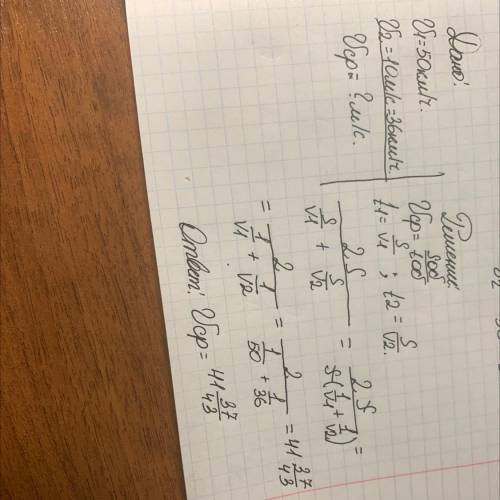 Дано:
V1=50км/ч.
V2=10м/с=36км/ч
Vср=?м/с.
Решение
Vср = Sоб/tоб
t1 = S/V1 ; t2 = S/V2.
2S/(S/V1 + S/V2) = 2S/(S(1/V1 + 1/V2)) =
= 2/(1/V1 + 1/V2) = 2/(1/50 + 1/36) = 41 37/43
Ответ: Vср = 41 37/43